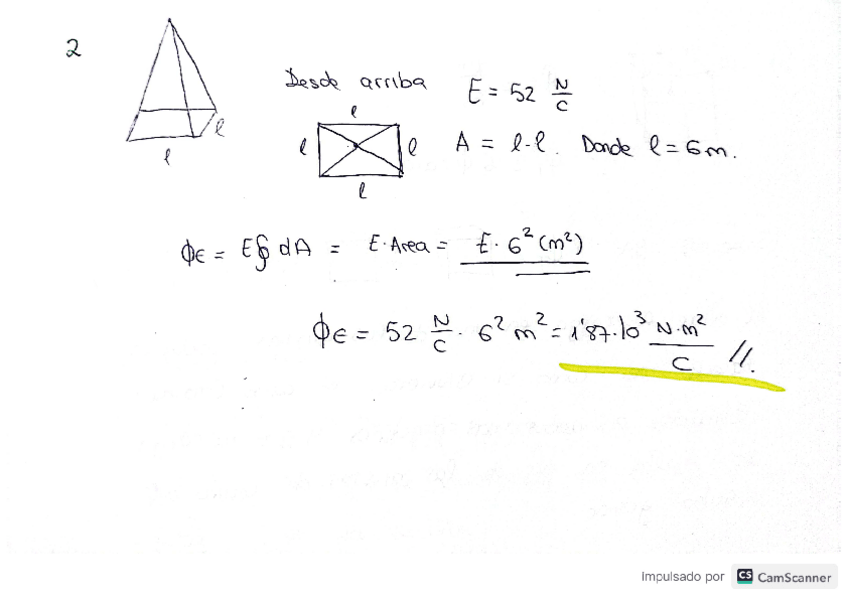 2
Desde arriba E = 52 N/C
l
l l A = l·l. Donde l = 6m.
l
l
l
ϕε = E∮dA = E·Area = E·6²(m²)
ϕε = 52 N/C · 6² m² = 1'87·10³ N·m²/C //.
Impulsado por CS CamScanner